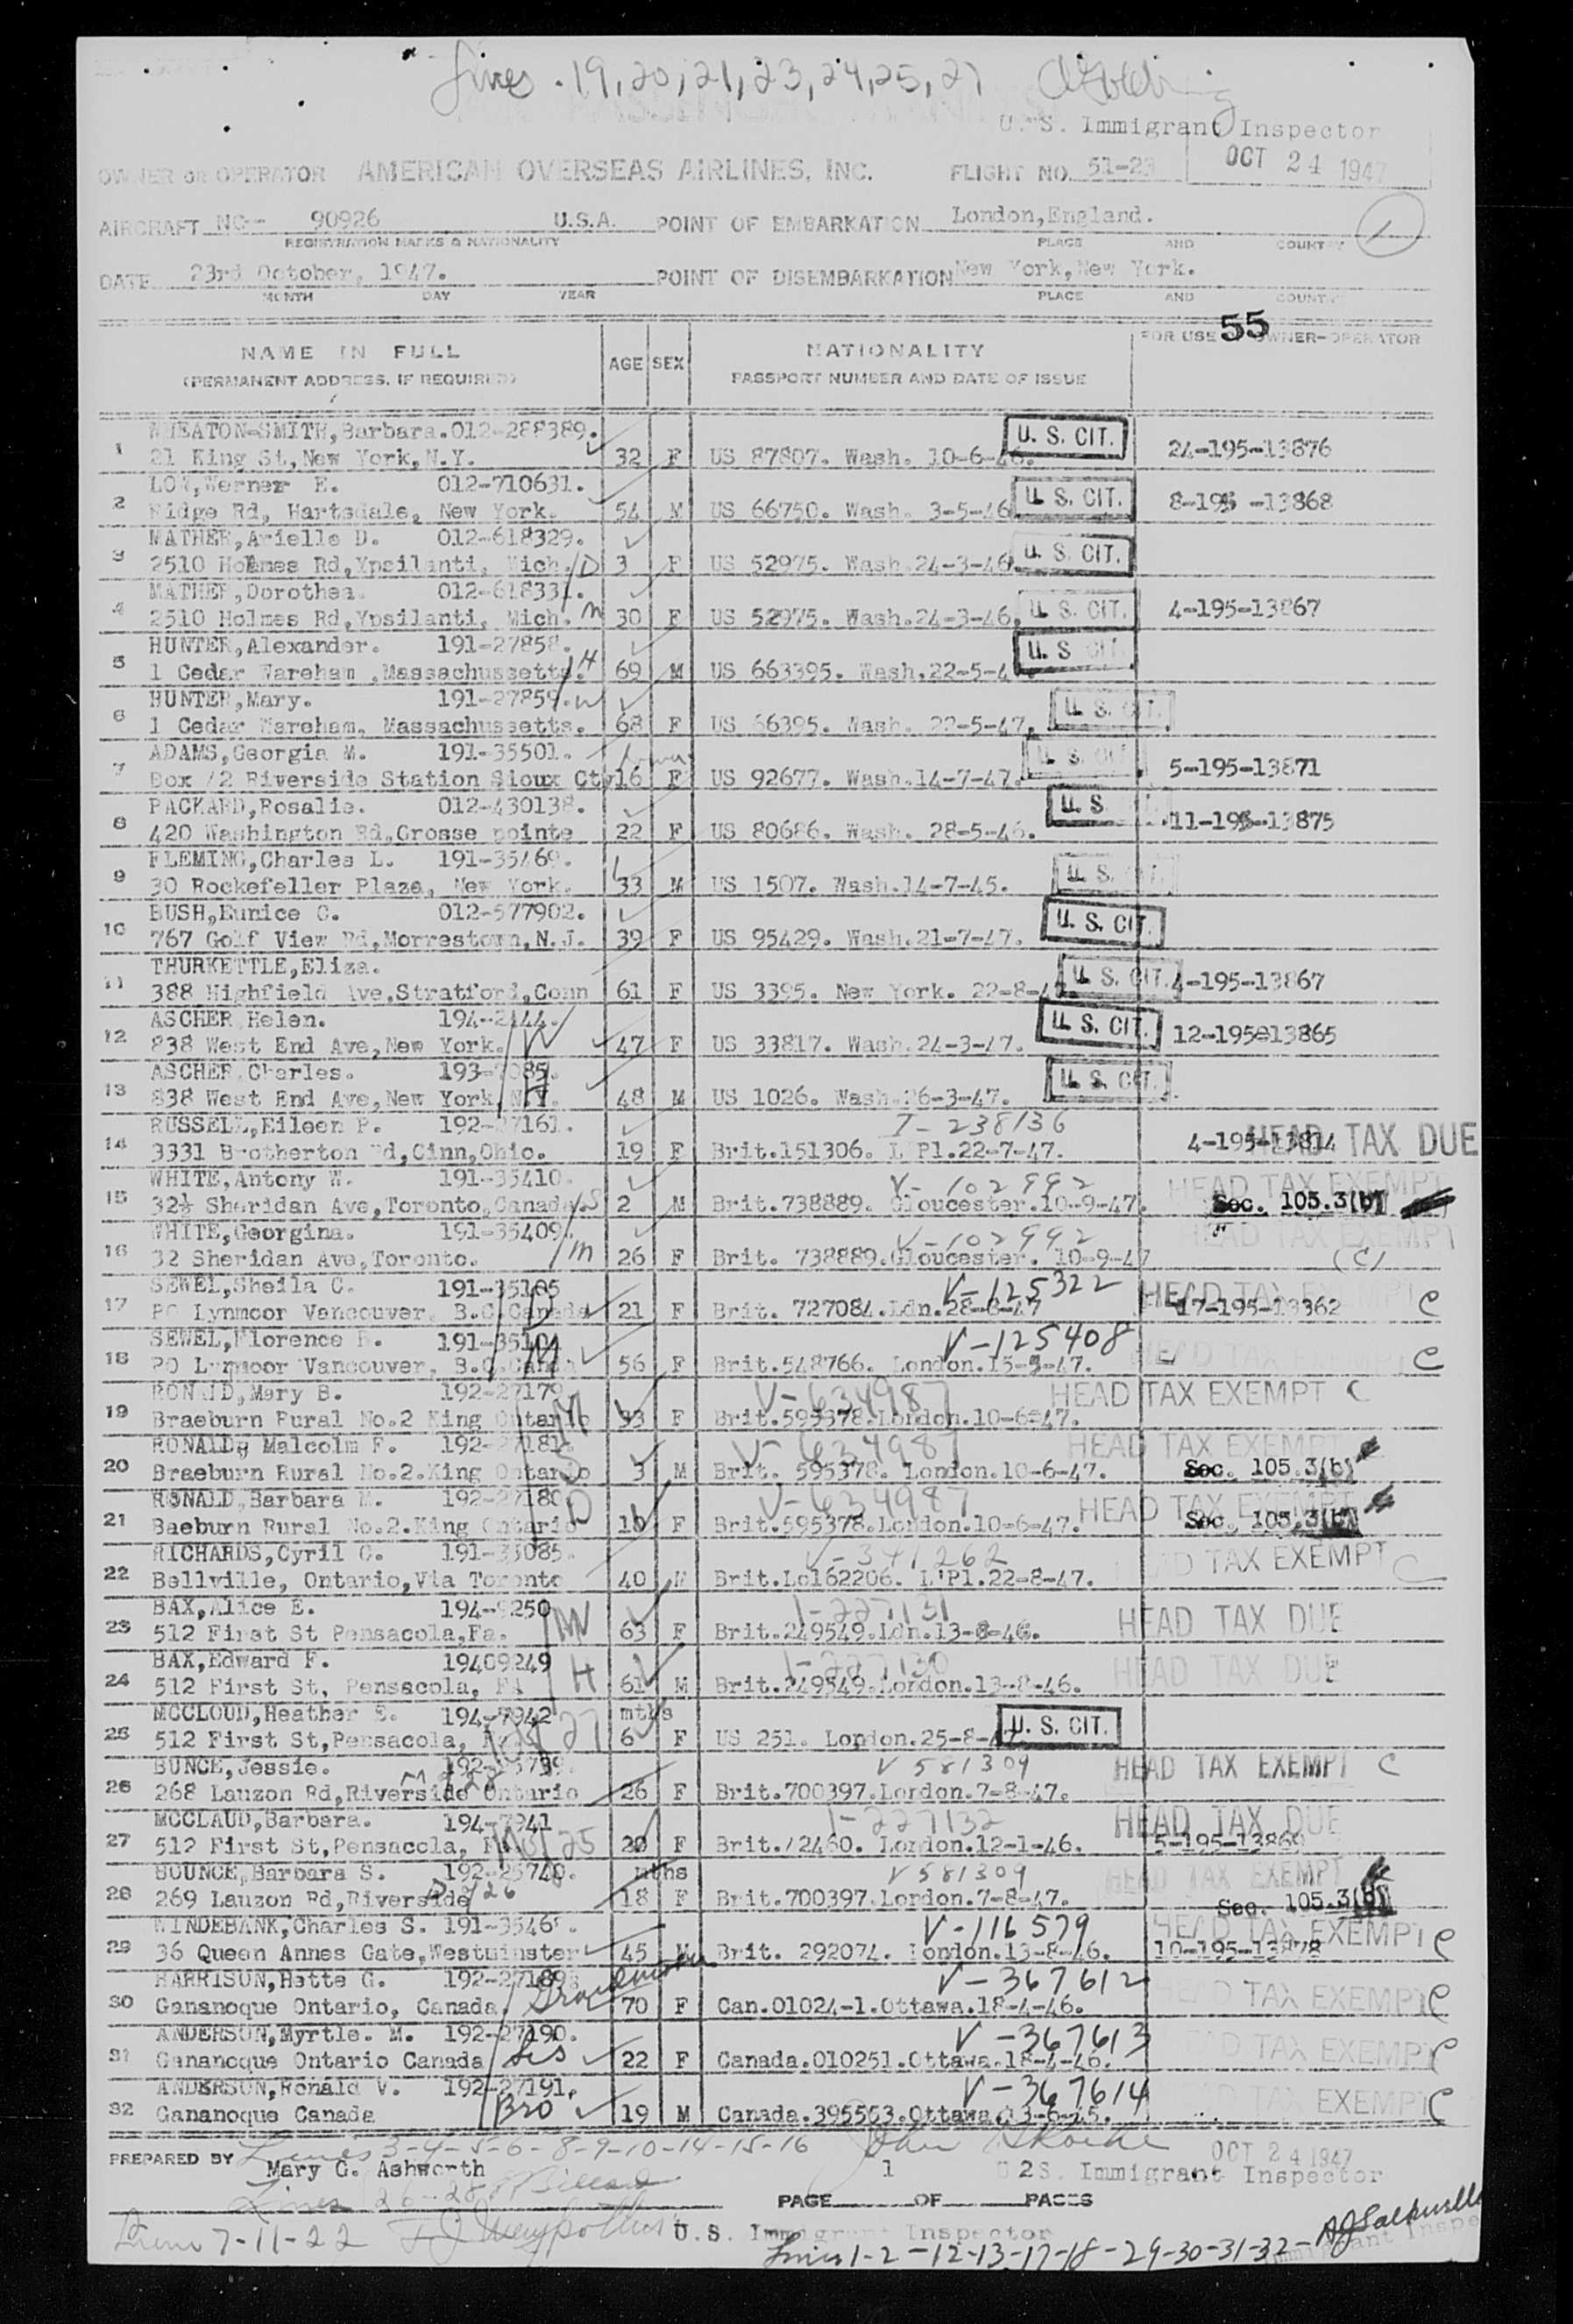 Lines . 19, 20, 21, 23, 24, 25, 27
U. S. Immigrant Inspector
OWNER OR OPERATOR AMERICAN OVERSEAS AIRLINES, INC. FLIGHT NO. 51-23 OCT 24 1947
AIRCRAFT NC- 90926 U.S.A. POINT OF EMBARKATION London,England. 1
REGISTRATION MARKS & NATIONALITY PLACE AND COUNTRY
DATE 23rd October, 1947. POINT OF DISEMBARKATION New York,New York.
MONTH DAY YEAR PLACE AND COUNTRY
55
NAME IN FULL AGE SEX NATIONALITY FOR USE OWNER-OPERATOR
(PERMANENT ADDRESS, IF REQUIRED) PASSPORT NUMBER AND DATE OF ISSUE
WHEATON-SMITH,Barbara.012-288389. U. S. CIT.
1 21 King St,New York,N.Y. 32 F US 87807. Wash. 10-6-46. 24-195-13876
LOW,Werner E. 012-710631. U. S. CIT.
2 Ridge Rd, Hartsdale, New York. 54 M US 66750. Wash. 3-5-46 8-195 -13868
MATHER,Arielle D. 012-618329. U. S. CIT.
3 2510 Holmes Rd,Ypsilanti, Mich. D 3 F US 52975. Wash.24-3-46.
MATHER,Dorothea. 012-618331. U. S. CIT.
4 2510 Holmes Rd,Ypsilanti, Mich. M 30 F US 52975. Wash.24-3-46. 4-195-13867
HUNTER,Alexander. 191-27858. U. S. CIT.
5 1 Cedar Wareham ,Massachussetts. H 69 M US 663395. Wash.22-5-4
HUNTER,Mary. 191-27859. W U. S. CIT.
6 1 Cedar Wareham. Massachussetts. 68 F US 66395. Wash. 22-5-47.
ADAMS,Georgia M. 191-35501. U. S. CIT.
7 Box 72 Riverside Station Sioux Cty 16 F US 92677. Wash.14-7-47. 5-195-13871
PACKARD,Rosalie. 012-430138. U. S.
8 420 Washington Rd,Grosse pointe 22 F US 80686. Wash. 28-5-46. 11-195-13875
FLEMING,Charles L. 191-35469. U. S. CIT.
9 30 Rockefeller Plaza, New York. 33 M US 1507. Wash.14-7-45.
BUSH,Eunice C. 012-577902. U. S. CIT.
10 767 Golf View Rd,Morrestown,N.J. 39 F US 95429. Wash.21-7-47.
THURKETTLE,Eliza. U. S. CIT.
11 388 Highfield Ave,Stratford,Conn 61 F US 3395. New York. 22-8-47. 4-195-13867
ASCHER Helen. 194-2144. U. S. CIT.
12 838 West End Ave,New York. W 47 F US 33817. Wash.24-3-47. 12-195-13865
ASCHER,Charles. 193-7085. U. S. CIT.
13 838 West End Ave,New York, N.Y. 48 M US 1026. Wash.26-3-47.
RUSSELL,Eileen P. 192-27161. I-238136 HEAD TAX DUE
14 3331 Brotherton Rd,Cinn,Ohio. 19 F Brit.151306. L Pl.22-7-47. 4-195-13814
WHITE,Antony W. 191-35410. V-102992 HEAD TAX EXEMPT
15 32½ Sheridan Ave,Toronto,Canada. S 2 M Brit.738889. Gloucester.10-9-47. Sec. 105.3(b)
WHITE,Georgina. 191-35409. V-102992 " HEAD TAX EXEMPT
16 32 Sheridan Ave,Toronto. M 26 F Brit. 738889.Gloucester. 10-9-47 (C)
SEWEL,Sheila C. 191-35105 V-125322 HEAD TAX EXEMPT
17 PO Lynmoor Vancouver. B.C.Canada D 21 F Brit. 727084.Ldn.28-8-47 17-195-13362 C
SEWEL,Florence B. 191-35104 V-125408 HEAD TAX EXEMPT
18 PO Lynmoor Vancouver, B.C.Canada M 56 F Brit.548766. London.15-9-47. C
RONALD,Mary B. 192-27179 V-634987 HEAD TAX EXEMPT C
19 Braeburn Rural No.2 King Ontario M 33 F Brit.595378.London.10-6-47.
RONALD, Malcolm F. 192-27181. V-634987 HEAD TAX EXEMPT
20 Braeburn Rural No.2.King Ontario S 3 M Brit. 595378. London.10-6-47. Sec. 105.3(b)
RONALD,Barbara M. 192-27180 D V-634987 HEAD TAX EXEMPT
21 Baeburn Rural No.2.King Ontario 10 F Brit.595378.London.10-6-47. Sec. 105.3(b)
RICHARDS,Cyril C. 191-35085. V-341262 HEAD TAX EXEMPT C
22 Bellville, Ontario,Via Toronto 40 M Brit.Lo162206. L'Pl.22-8-47.
BAX,Alice E. 194-9250 W I-227131 HEAD TAX DUE
23 512 First St Pensacola,Fa. 63 F Brit.249549.Ldn.13-8-46.
BAX,Edward F. 19409249 H I-227130 HEAD TAX DUE
24 512 First St, Pensacola, FA 61 M Brit.249549.London.13-8-46.
MCCLOUD,Heather E. 194-7942 mths U. S. CIT.
25 512 First St,Pensacola, 27 6 F US 251. London.25-8-47
BUNCE,Jessie. 192-25739. V 581309 HEAD TAX EXEMPT C
26 268 Lauzon Rd,Riverside Ontario M 28 26 F Brit.700397.London.7-8-47.
MCCLAUD,Barbara. 194-7941 I-227132 HEAD TAX DUE
27 512 First St,Pensacola, 25 20 F Brit.72460. London.12-1-46. 5-195-13869
BOUNCE,Barbara S. 192-25740. mths V 581309 HEAD TAX EXEMPT
28 269 Lauzon Rd,Riverside D 26 18 F Brit.700397.London.7-8-47. Sec. 105.3(b)
WINDEBANK,Charles S. 191-35468. V-116579 HEAD TAX EXEMPT C
29 36 Queen Annes Gate,Westminster 45 M Brit. 292074. London.13-8-46. 10-195-13878
HARRISON,Hatte G. 192-27189. Grandmother V-367612
30 Gananoque Ontario, Canada. 70 F Can.01024-1.Ottawa.18-4-46. HEAD TAX EXEMPT C
ANDERSON,Myrtle. M. 192-27190. V-367613
31 Gananoque Ontario Canada Sis 22 F Canada.010251.Ottawa.18-4-46. HEAD TAX EXEMPT C
ANDERSON,Ronald V. 192-27191. V-367614
32 Gananoque Canada Bro 19 M Canada.395563.Ottawa.13-6-45. TAX EXEMPT C
Lines 3-4-5-6-8-9-10-14-15-16 OCT 24 1947
PREPARED BY Mary G. Ashworth 1 2 U S. Immigrant Inspector
Lines 26-28
PAGE OF PAGES
Lines 7-11-22 U.S. Immigrant Inspector
Lines 1-2-12-13-17-18-29-30-31-32-